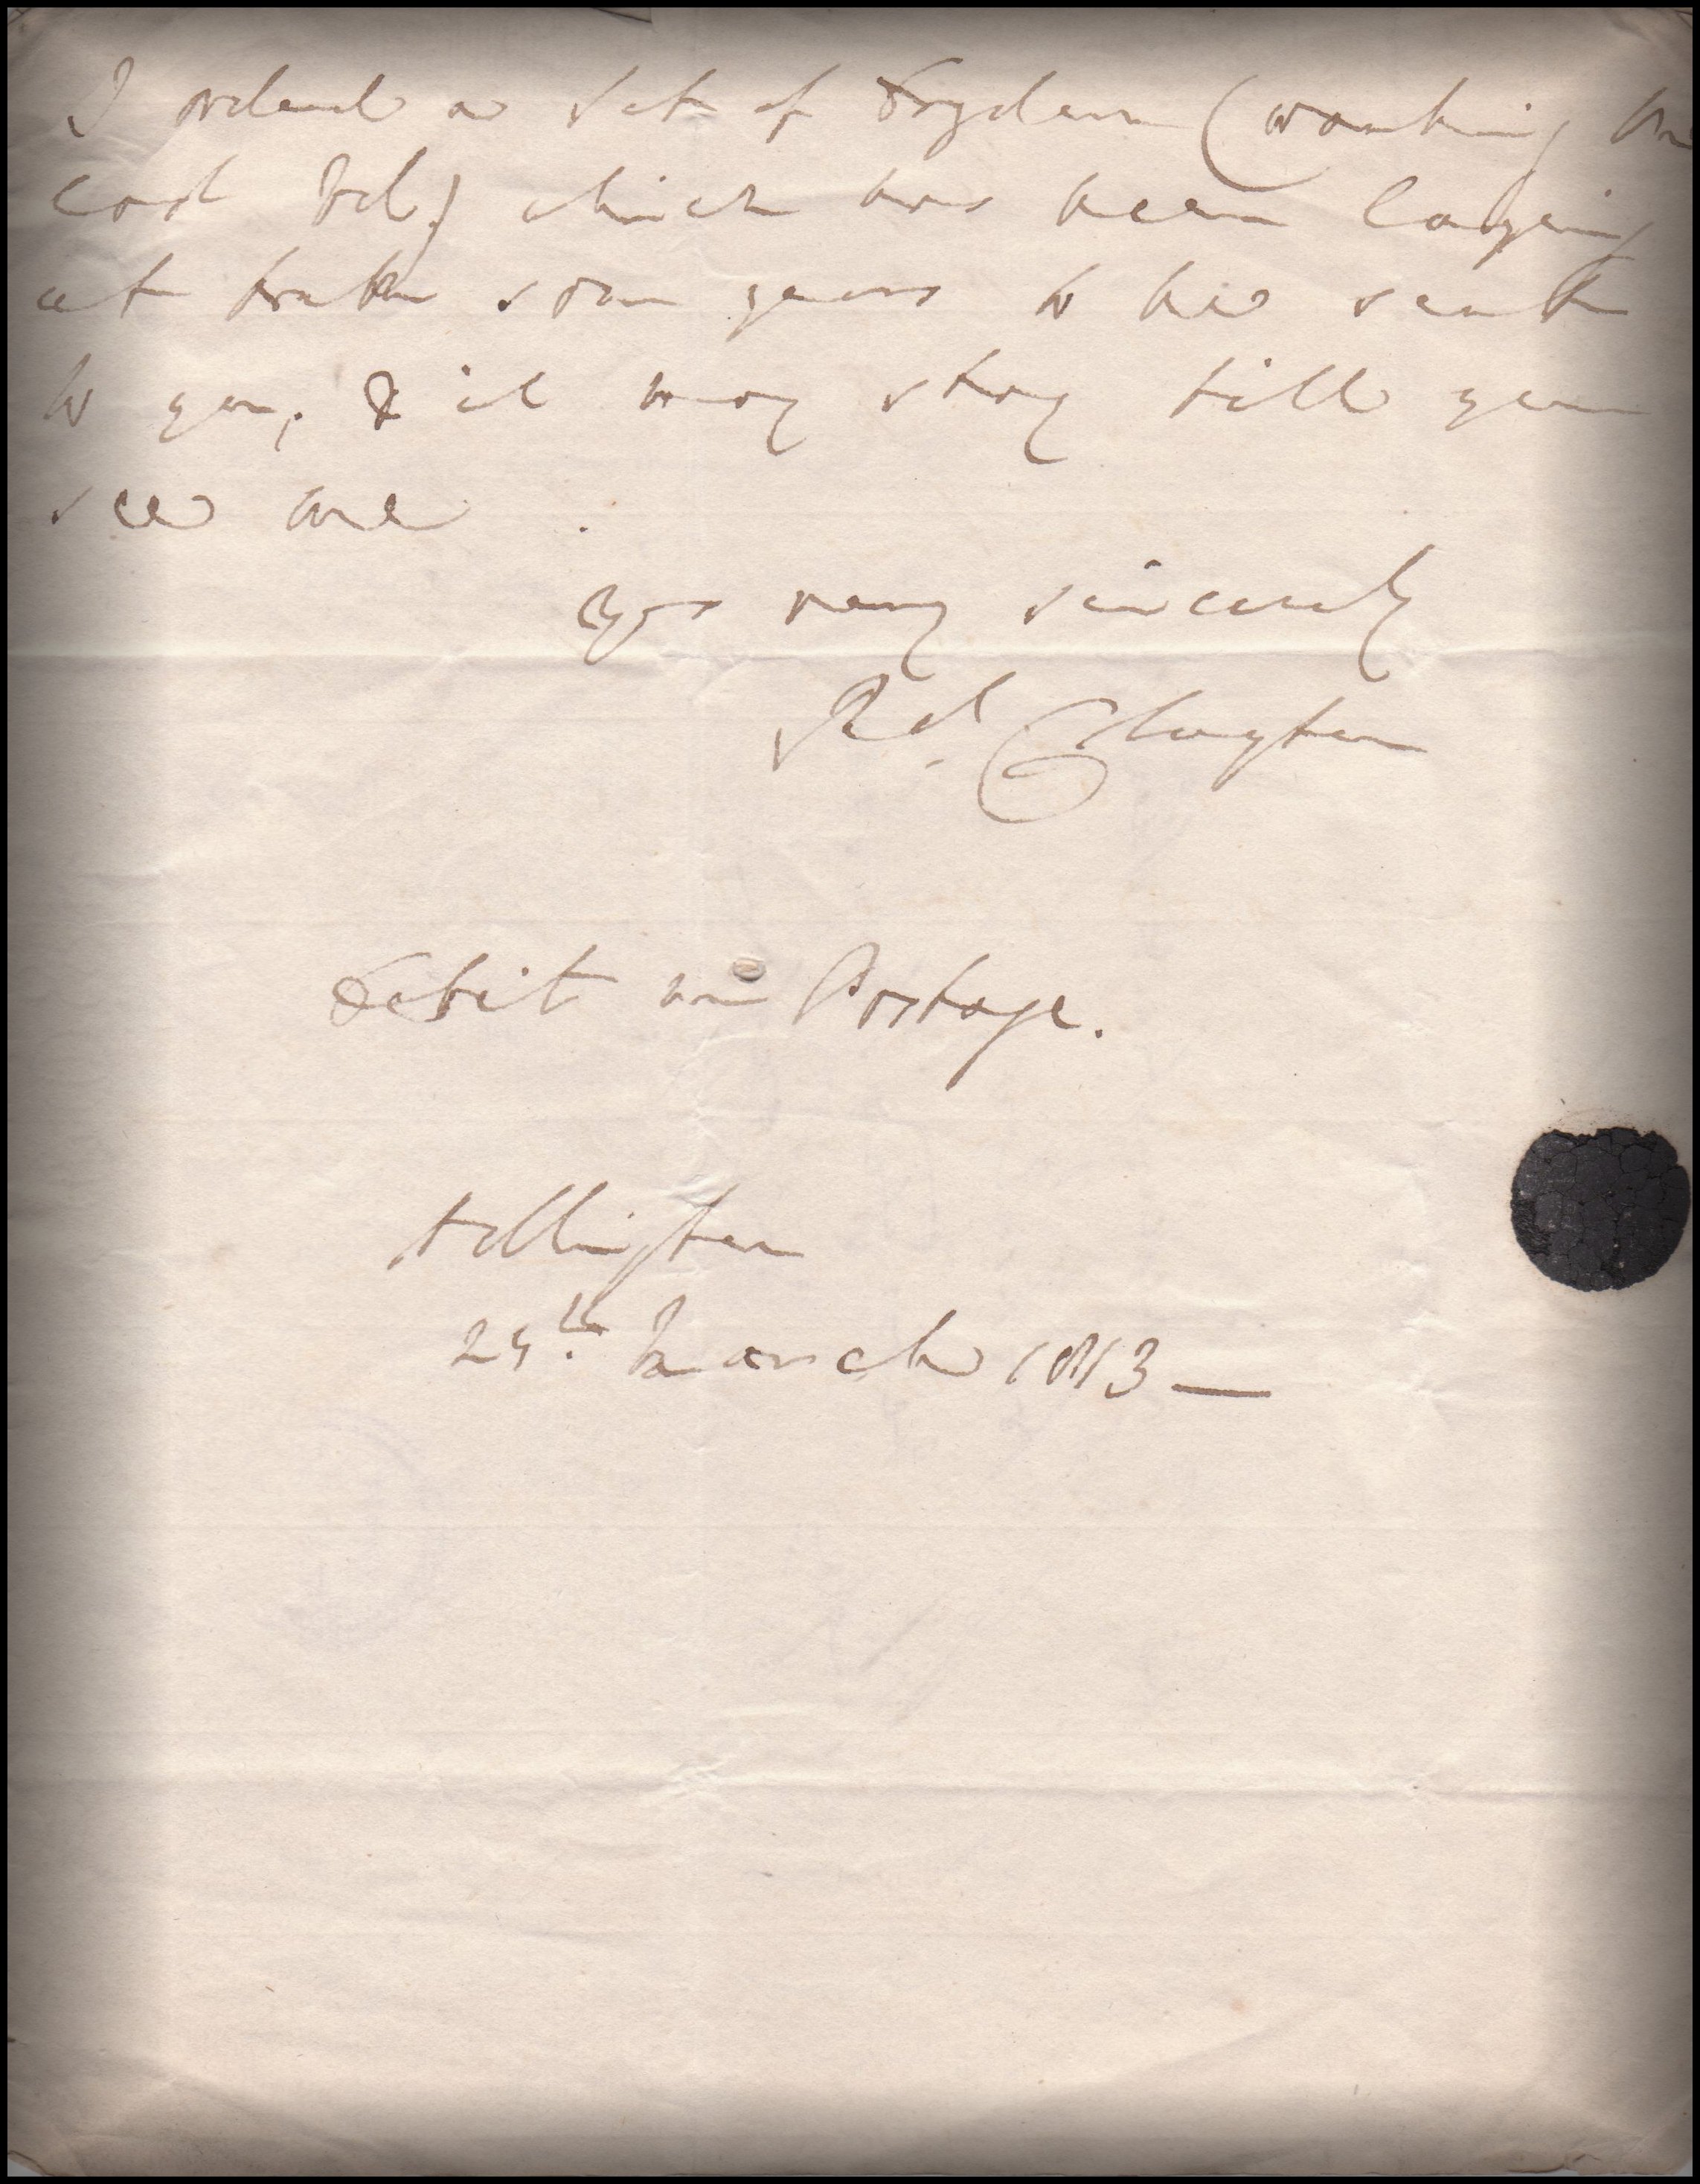 I ordered a Set of Dryden (wanting the
last Vol,) which has been laying
at some years to be sent
to you, & it may stay till you
see me.
Yrs very sincerely
Rd. Clayton
Debit me Postage.
March 1813 —